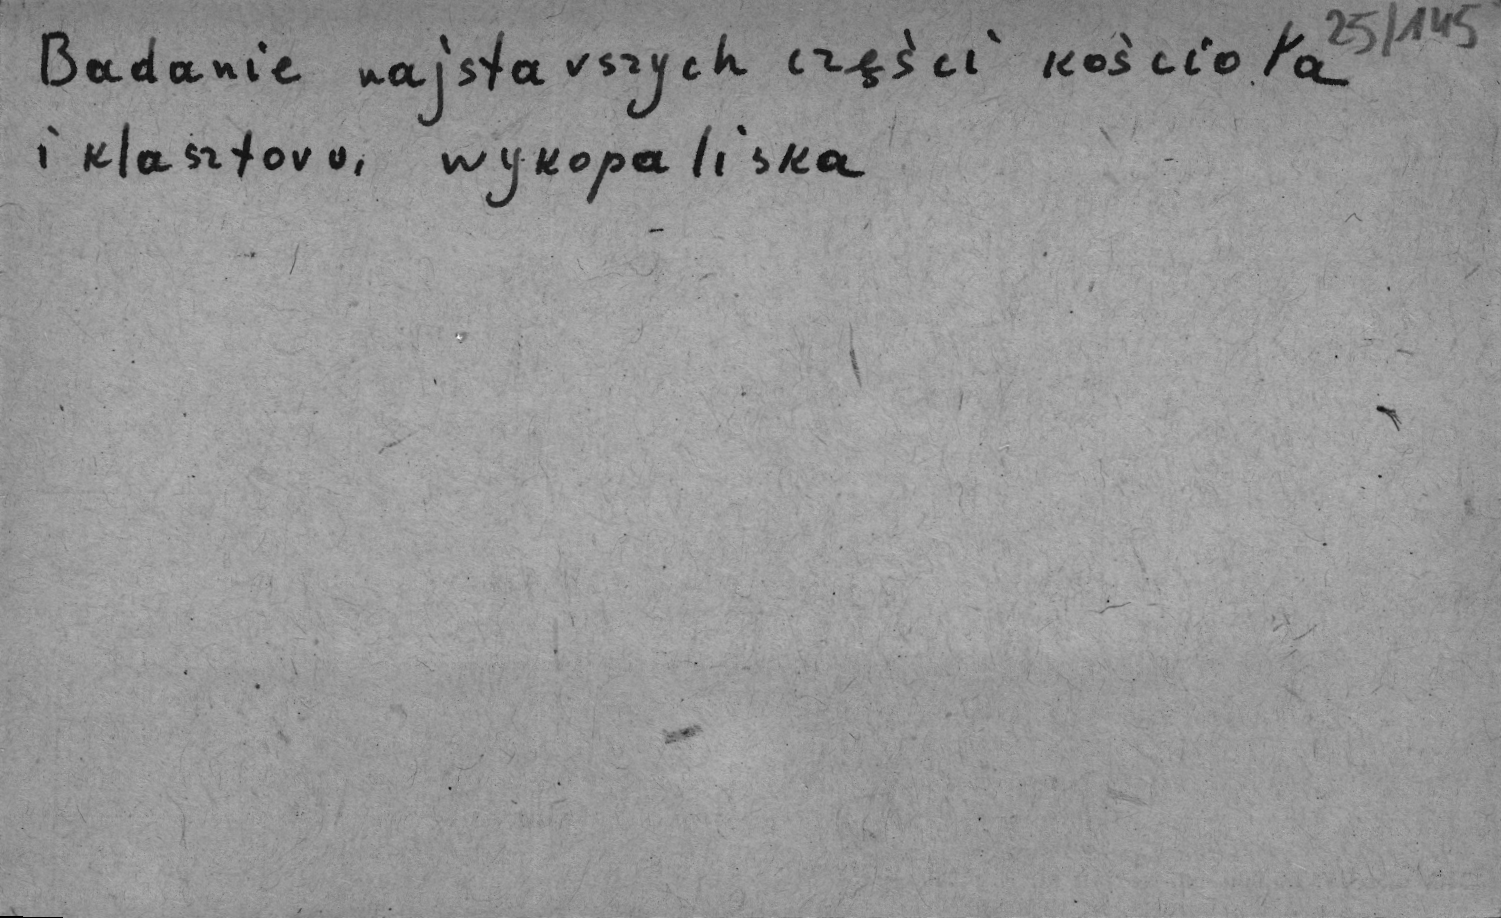 25/145
Badanie najstarszych części kościoła
i klasztoru, wykopaliska